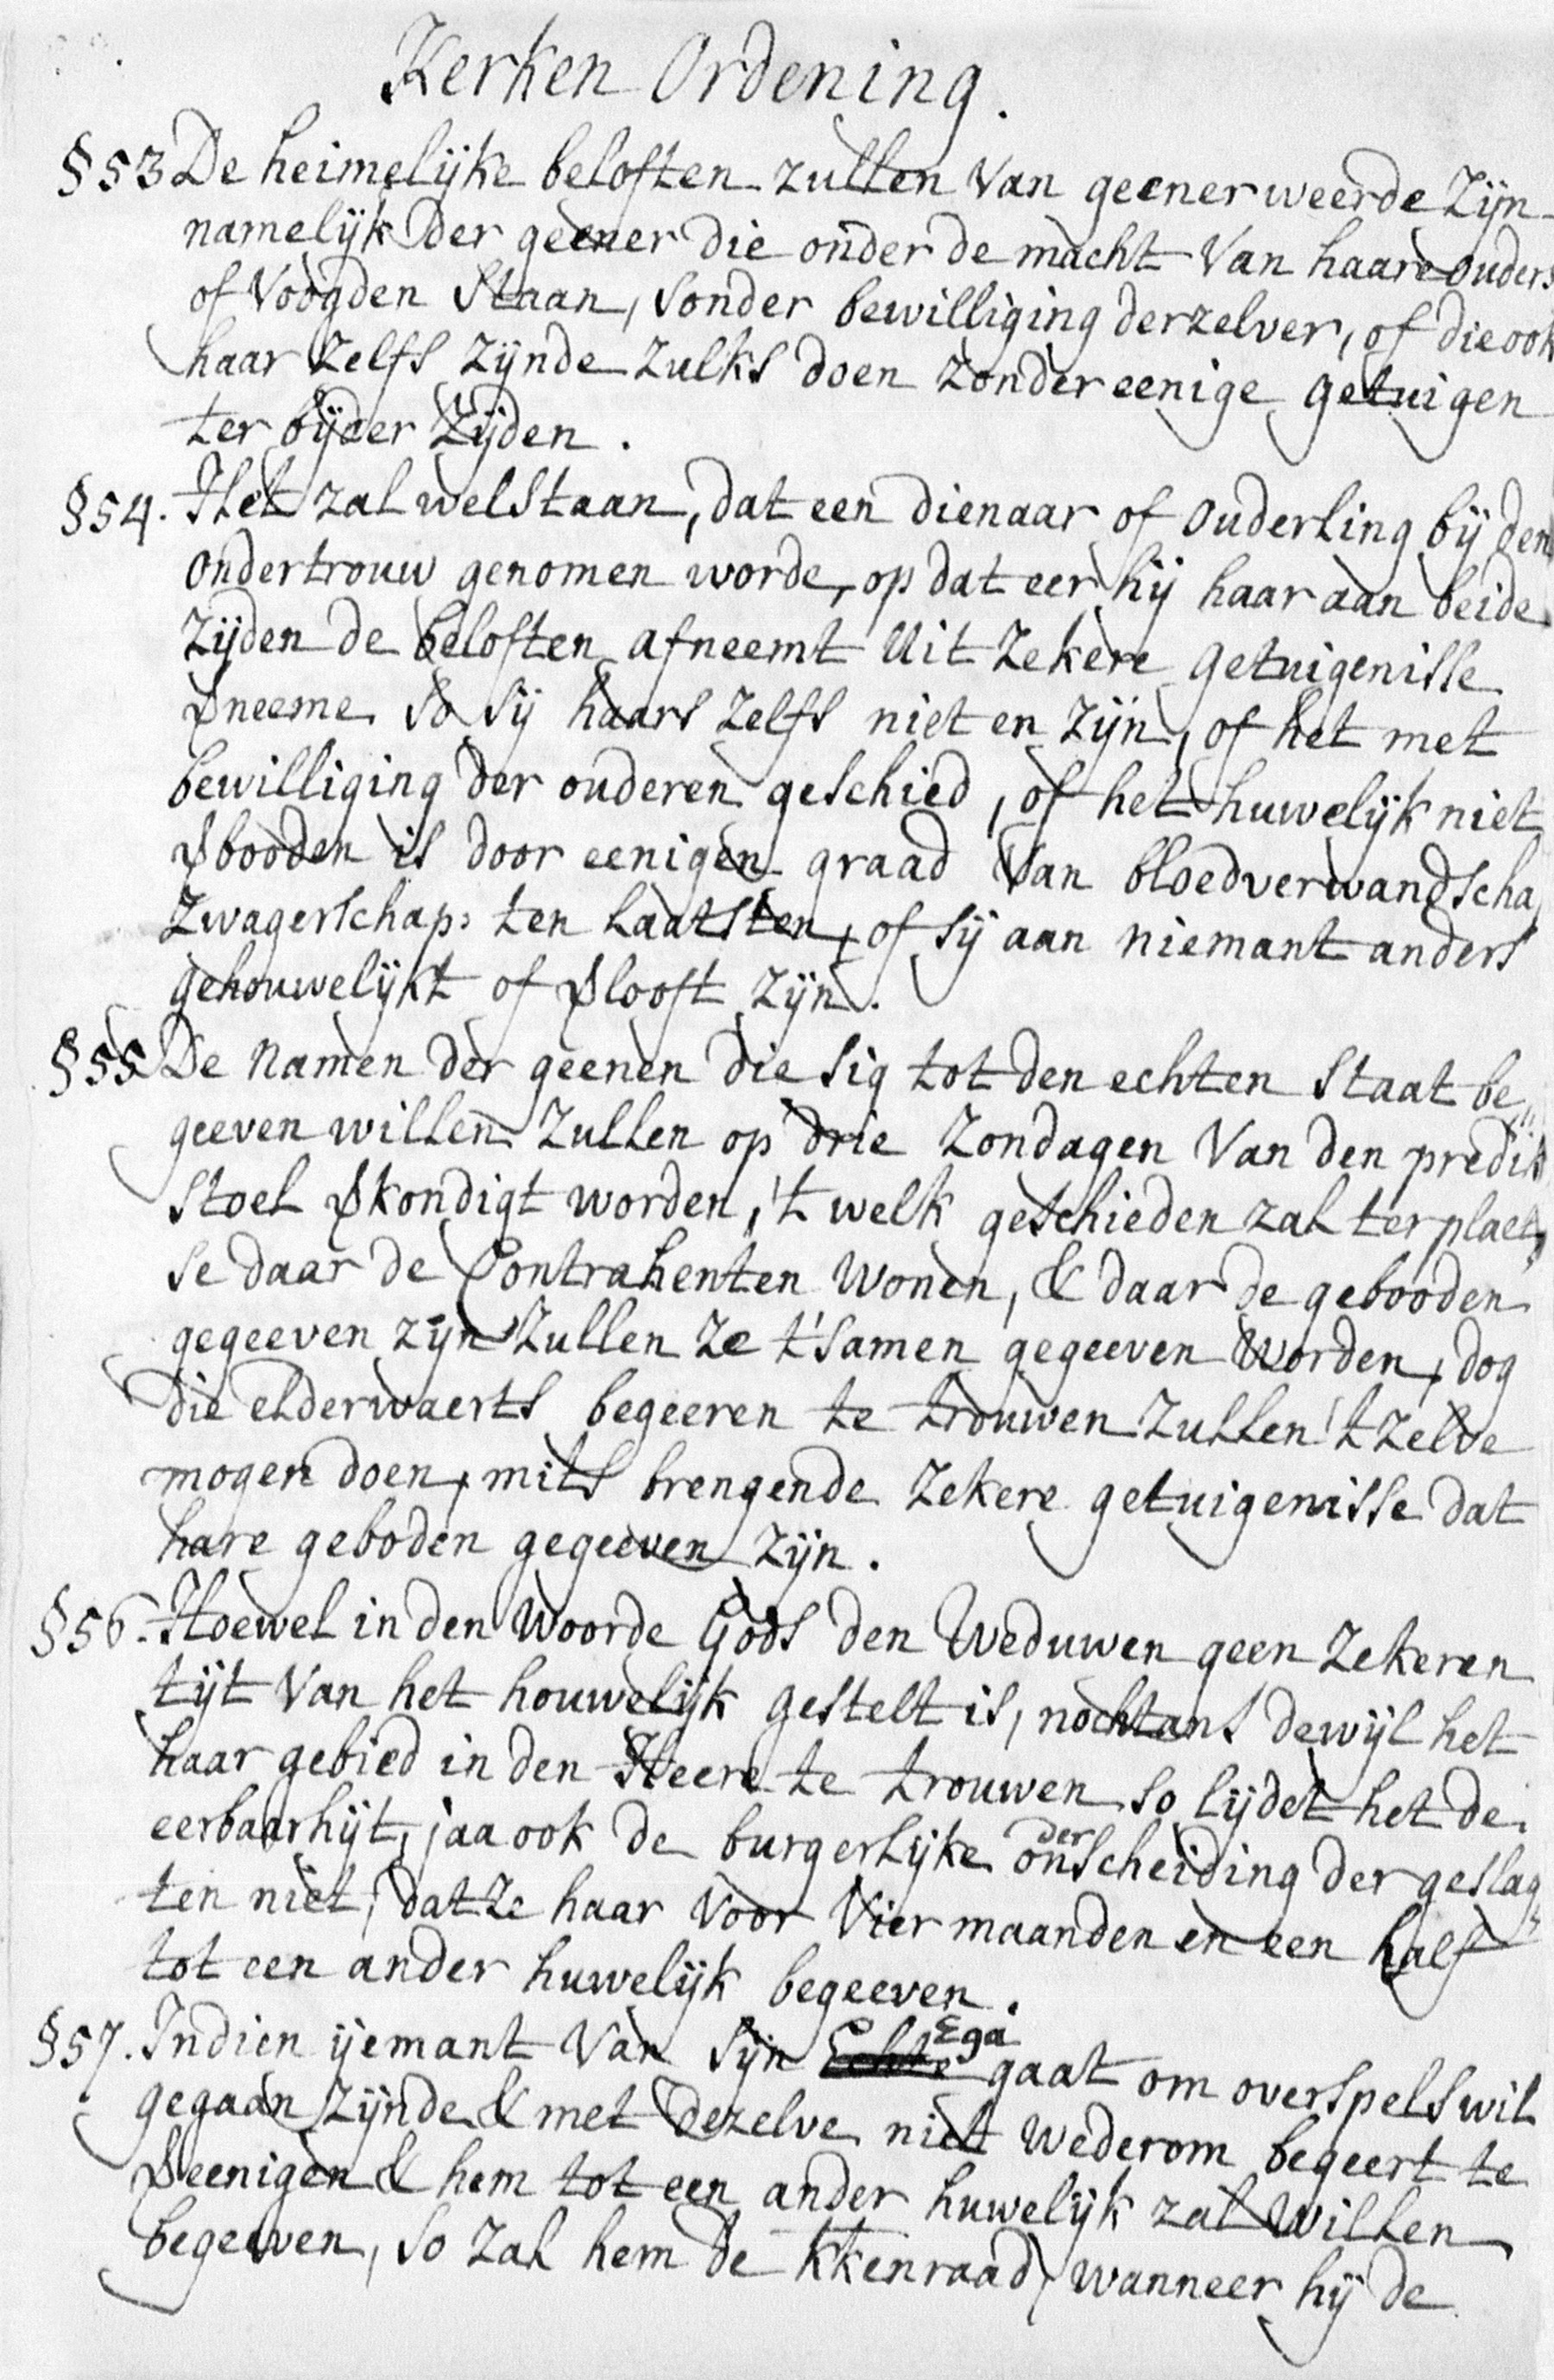 Kerken Ordening.
§53 De heimelijke beloften zullen van geener weerde Zijn
namelijk der geener die onder de macht van haare ouders
of Voogden Staan, Sonder bewilliging derzelver, of die ook
haar Zelfs Zijnde Zulks doen zonder eenige getuigen
ter bijder Zijden.
§54. Het zal wel Staan, dat een dienaar of Ouderling bij den
Ondertrouw genomen worde, op dat eer hij haar aan beide
Zijden de beloften afneemt Uit Zekere getuigenisse
neeme So Sij haars Zelfs niet en Zijn, of het met
bewilliging der ouderen geschied, of het huwelijk niet
booden is door eenigen graad van bloedverwandscha
Zwagerschap: ten laatsten, of Sij aan niemant anders
gehouwelijkt of looft Zijn.
§55 De Namen der geenen die Sig tot den echten Staat be„
geeven willen Zullen op drie Zondagen van den predik
Stoel kondigt worden, 't welk geschieden zal ter plaet„
se daar de Contrahenten Wonen, & daar de gebooden
gegeeven zijn Zullen Ze t'Samen gegeeven Worden, dog
die elderwaerts begeeren te trouwen Zullen 't Zelve
mogen doen, mits brengende Zekere getuigenisse dat
hare geboden gegeeven Zijn.
§56. Hoewel in den Woorde Gods den Weduwen geen Zekeren
tijt van het houwelijk gestelt is, nochtans dewijl het
haar gebied in den Heere te trouwen so lijdet het de
eerbaarhijt, jaa ook de burgerlijke onderscheiding der geslag„
ten niet, dat Ze haar voor vier maanden en een half
tot een ander huwelijk begeeven.
§57. Indien ijemant van Sijn Echte Ega gaat om overspels wil
gegaan Zijnde & met dezelve niet wederom begeert te
eenigen & hem tot een ander huwelijk zal Willen
begeeven, So Zal hem de kkenraad, wanneer hij de